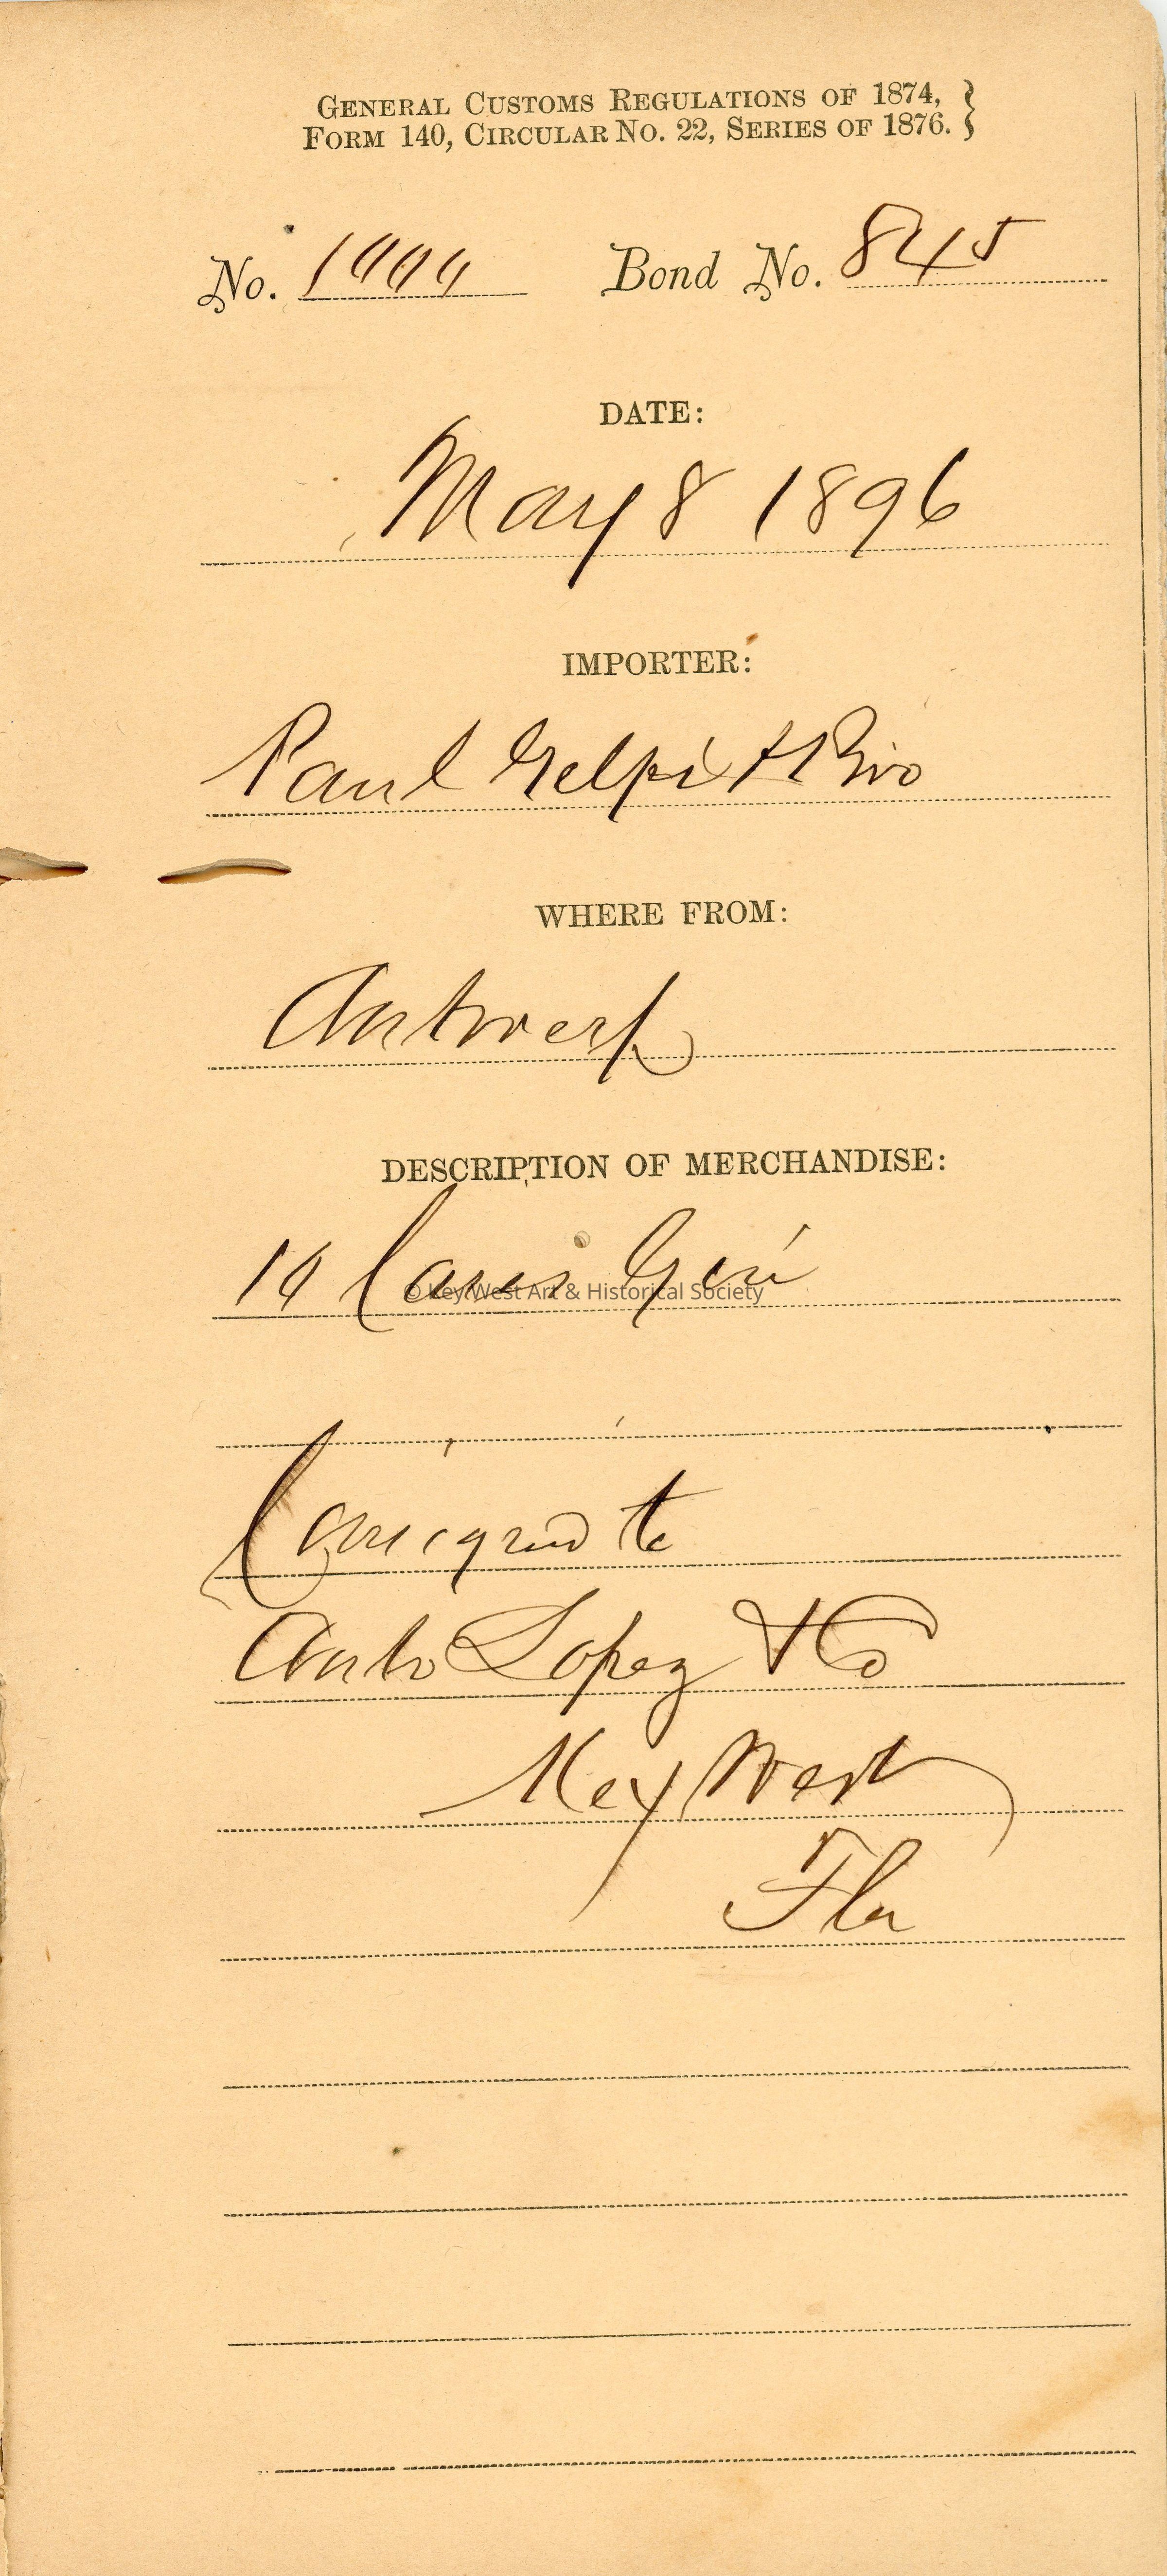 GENERAL CUSTOMS REGULATIONS OF 1874,
FORM 140, CIRCULAR No. 22, SERIES OF 1876. }
No. Bond No. 845
DATE:
May 8 1896
IMPORTER:
Paul Gelpi & Bro
WHERE FROM:
Antwerp
DESCRIPTION OF MERCHANDISE:
Cases Gin
© Key West Art & Historical Society
Consigned to
Anto Lopez & Co
Key West
Fla